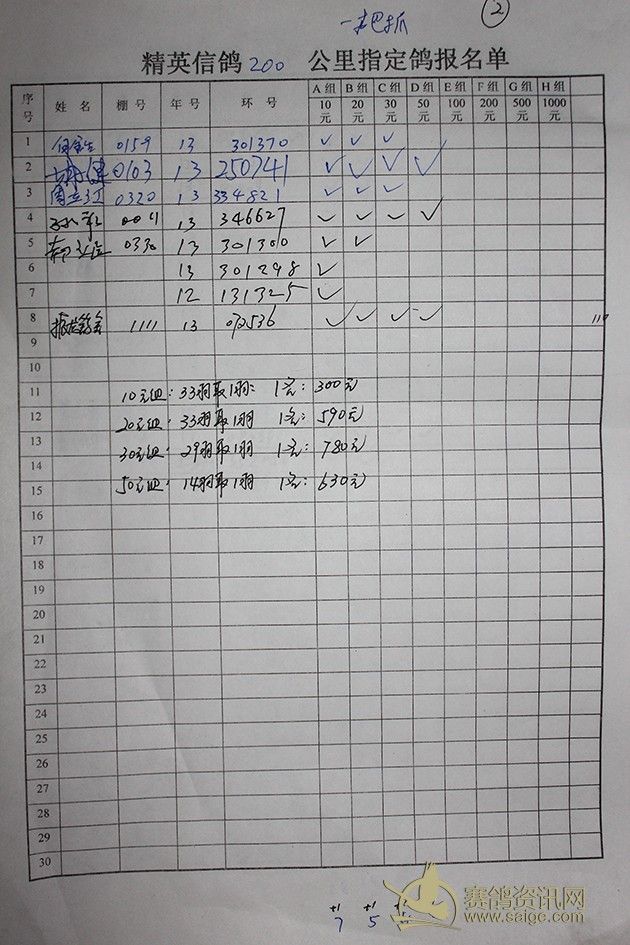 一把抓 ②
精英信鸽200 公里指定鸽报名单
序号 姓 名 棚 号 年 号 环 号 A 组 10 元 B 组 20 元 C 组 30 元 D 组 50 元 E 组 100 元 F 组 200 元 G 组 500 元 H 组 1000 元
1 0159 13 301370 ✓ ✓ ✓
2 0103 13 250741 ✓ ✓ ✓ ✓
3 0320 13 334821 ✓ ✓ ✓
4 13 346627 ✓ ✓ ✓ ✓
5 0330 13 ✓ ✓
6 13 301298 ✓
7 12 131325 ✓
8 1111 13 ✓ ✓ ✓ ✓
9
10
11 10元组: 33羽取1羽: 1名: 300元
12 20元组: 33羽取1羽 1名: 590元
13 30元组: 29羽取1羽 1名: 780元
14
15 50元组: 14羽取1羽 1名: 630元
16
17
18
19
20
21
22
23
24
25
26
27
28
29
30
+1 +1
7 5
赛鸽资讯网
www.saige.com